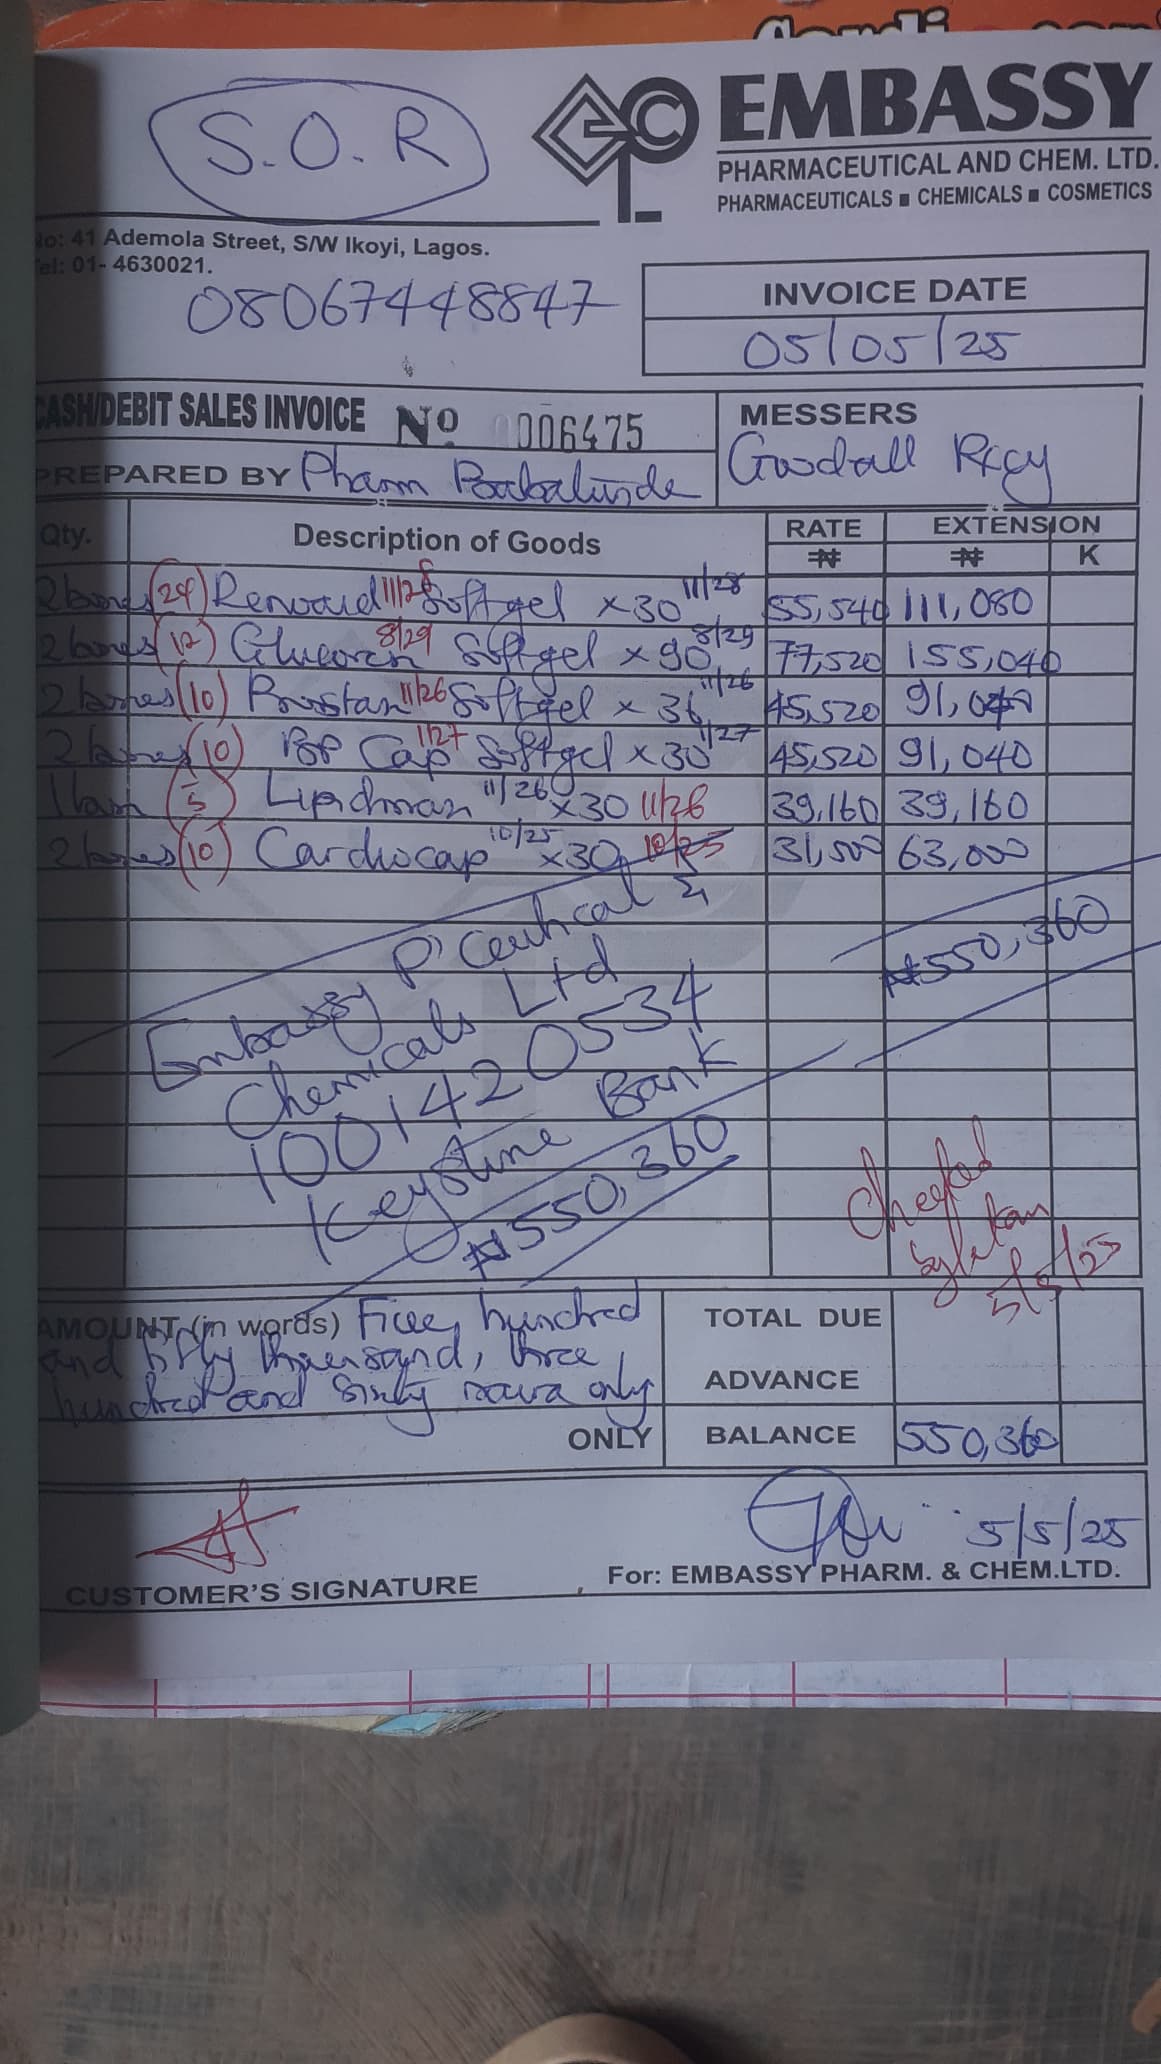 S.O.R
EMBASSY
PHARMACEUTICAL AND CHEM. LTD.
PHARMACEUTICALS ■ CHEMICALS ■ COSMETICS
No: 41 Ademola Street, S/W Ikoyi, Lagos.
Tel: 01- 4630021.
08067448847
INVOICE DATE
05/05/25
CASH/DEBIT SALES INVOICE Nº 006475
MESSERS
PREPARED BY Pharm Babatunde
Goodall
Qty. Description of Goods RATE EXTENSION
₦ ₦ K
2 boxes (24) 11/28 Softgel x30 11/28 55,540 111,080
2 boxes (12) 8/29 Softgel x 90 8/29 77,520 155,040
2 boxes (10) Prostan 11/26 Softgel x 36 11/26 45,520 91,040
2 boxes (10) BP Cap 1/27 Softgel x30 1/27 45,520 91,040
(5) 11/26 x30 11/26 39,160 39,160
2 boxes (10) Cardiocap 10/25 x30 10/25 31,500 63,000
₦550,360
Embassy P'Ceutical &
Chemicals Ltd
1001420534
Keystone Bank
₦550,360
Checked
5/5/25
AMOUNT (in words) Five hundred
and fifty thousand, three
hundred and sixty naira only
ONLY
TOTAL DUE
ADVANCE
BALANCE 550,360
5/5/25
CUSTOMER'S SIGNATURE
For: EMBASSY PHARM. & CHEM.LTD.